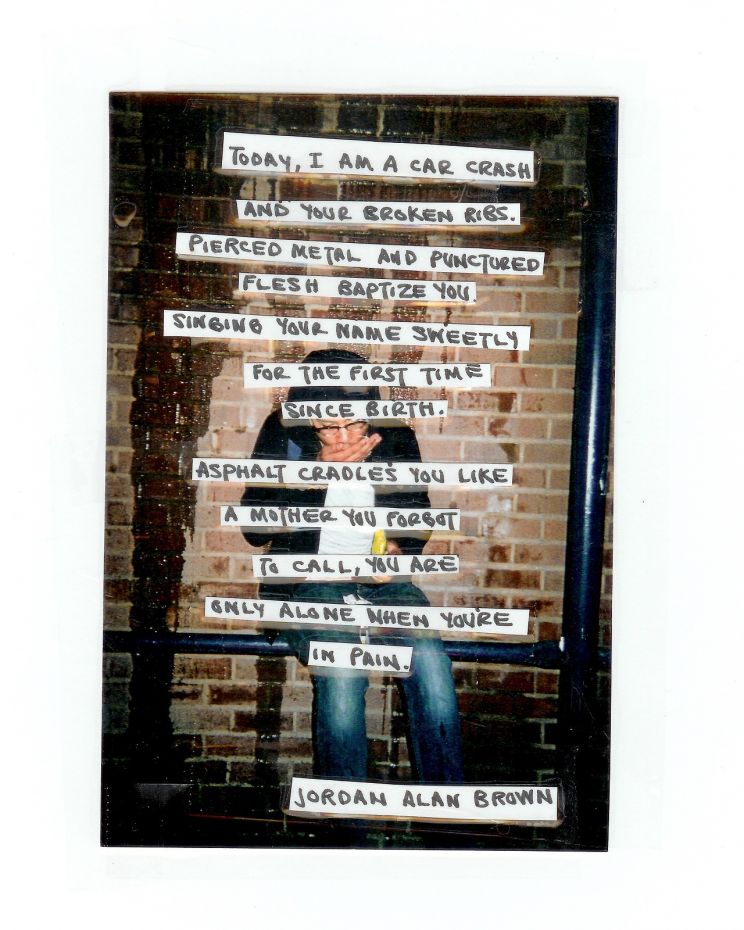 TODAY, I AM A CAR CRASH
AND YOUR BROKEN RIBS.
PIERCED METAL AND PUNCTURED
FLESH BAPTIZE YOU.
SINGING YOUR NAME SWEETLY
FOR THE FIRST TIME
SINCE BIRTH.
ASPHALT CRADLES YOU LIKE
A MOTHER YOU FORGOT
TO CALL, YOU ARE
ONLY ALONE WHEN YOU'RE
IN PAIN.
JORDAN ALAN BROWN